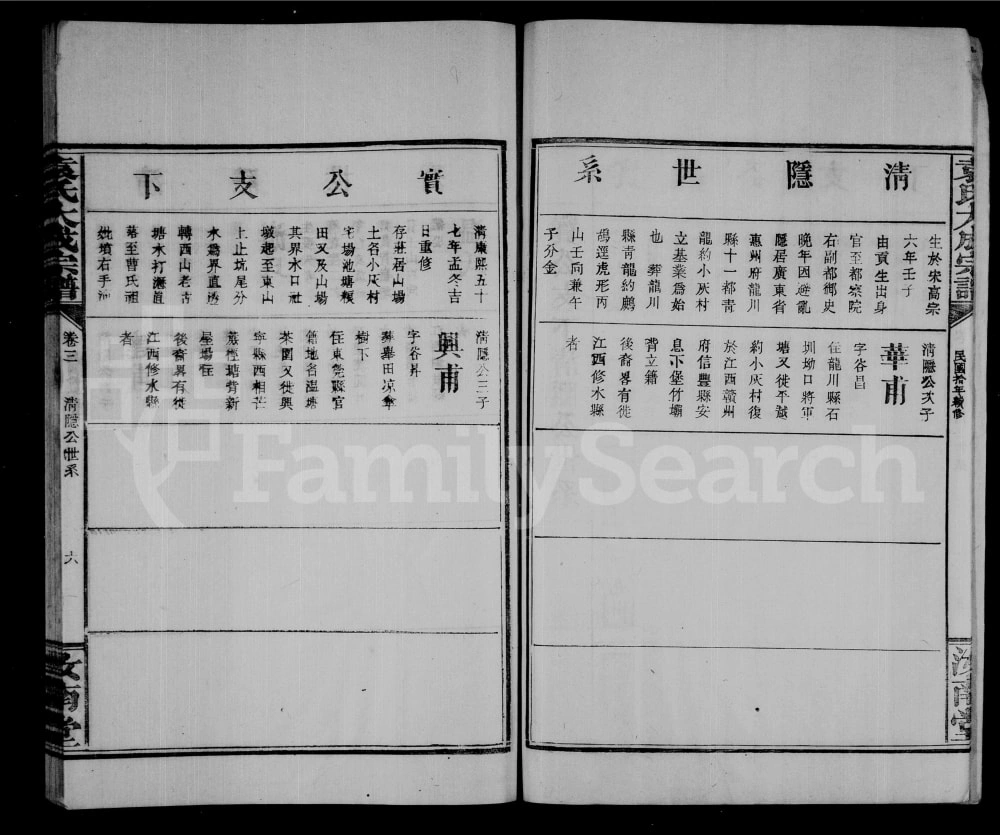 清隱世系
生於宋高宗
六年壬子
由貢生出身
官至都察院
右副都御史
晚年因避亂
隱居廣東省
惠州府龍川
縣十一都青
龍約小灰村
立基業爲始
也 葬龍川
縣青龍約鷓
鴣逕虎形丙
山壬向兼午
子分金
清隱公次子
華甫
字谷昌
住龍川縣石
圳坳口將軍
塘又徙平
約小灰村復
於江西贛州
府信豐縣安
息下堡竹壩
背立籍
後裔畧有徙
江西修水縣
者
袁氏大成宗譜
民國拾年續修
汝南堂
實公支下
清康熙五十
七年孟冬吉
日重修
存莊居山場
土名小灰村
宅場池塘糧
田又及山場
其界水口社
墩起至東山
上止坑尾分
水爲界直透
轉西山老青
塘水打灘
落至曹氏祖
妣墳右手
清隱公三子
興甫
字谷昇
葬畢田凉傘
樹下
住東莞縣官
籍地名温塘
茶園又徙興
寧縣西相芒
蕉㭴塘背新
屋場住
後裔畧有徙
江西修水縣
者
袁氏大成宗譜
卷三
清隱公世系
六
汝南堂
FamilySearch